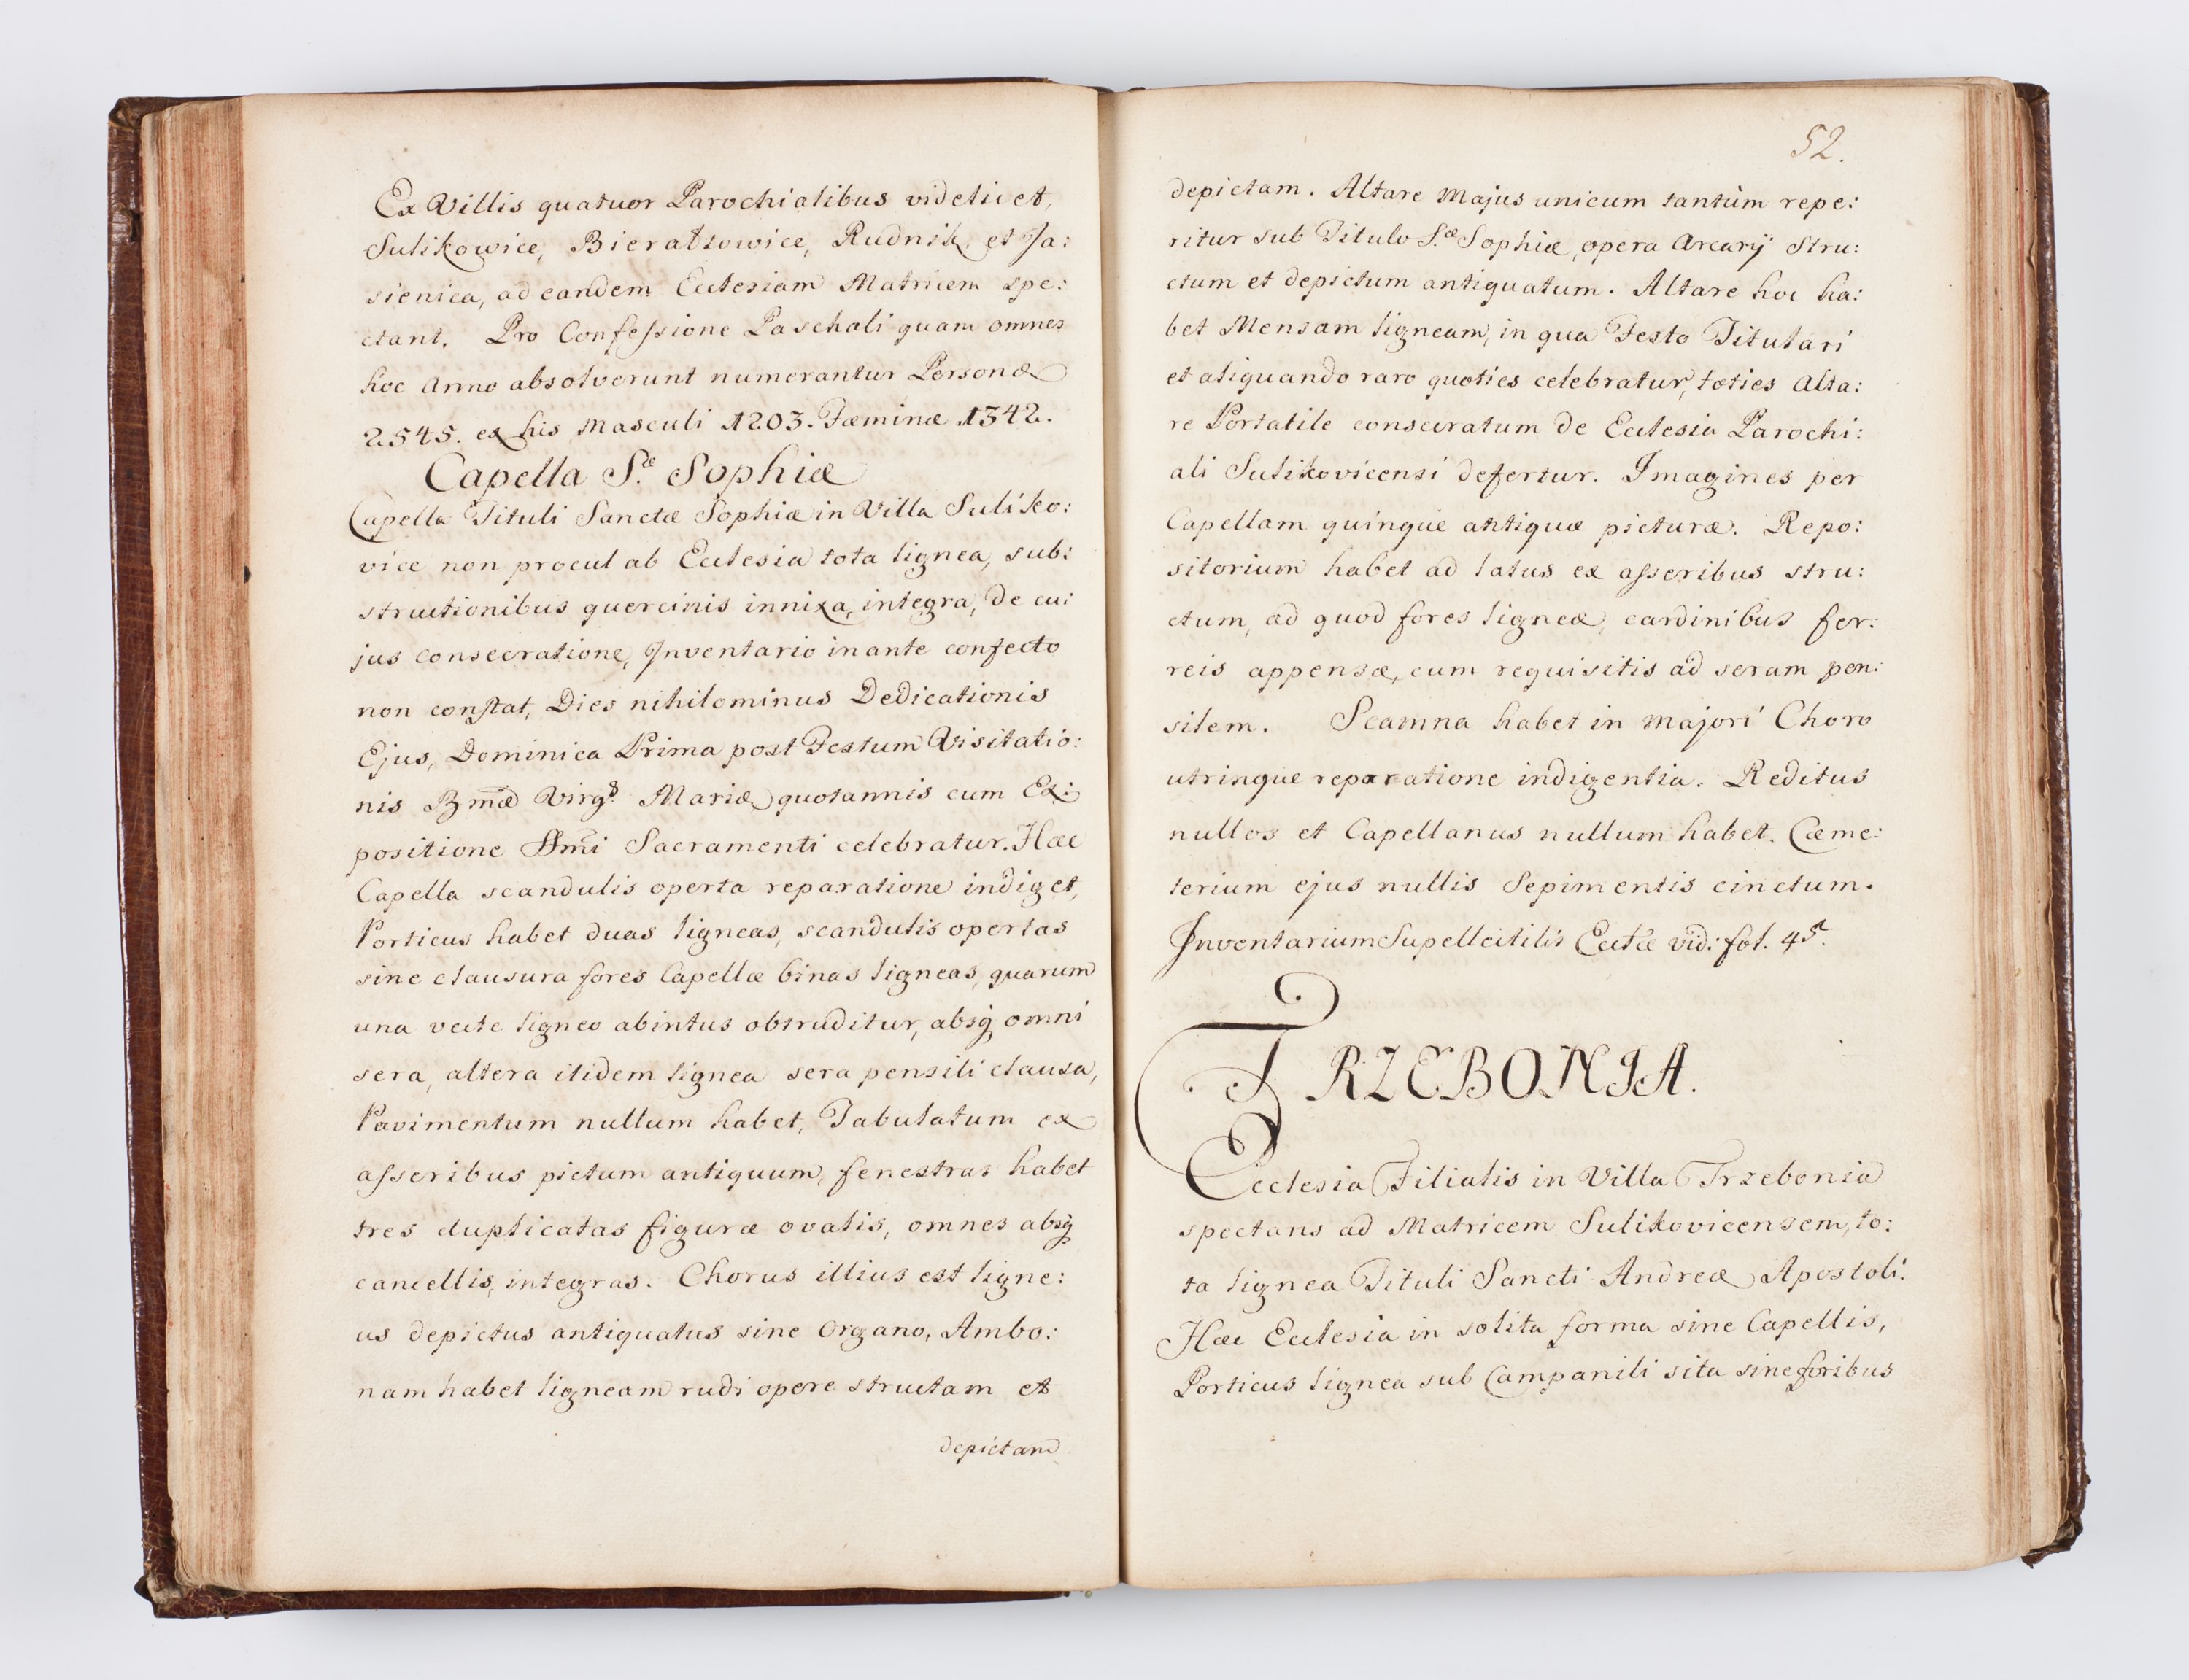 Ex Villis quatuor Parochialibus videlicet,
Sulikowice, Bieratzowice, Rudnik, et Ja:
sienica, ad eandem Ecclesiam Matricem spe:
ctant. Pro Confessione Paschali quam omnes
hoc Anno absolverunt numerantur Personæ
2545. ex his Masculi 1203. Fæminæ 1342.
Capella S.æ Sophiæ
Capella Tituli Sanctæ Sophiæ in Villa Suliko:
vice non procul ab Ecclesia tota lignea, sub:
structionibus quercinis innixa, integra, de cu:
jus consecratione, Inventario in ante confecto
non constat, Dies nihilominus Dedicationis
Ejus, Dominica Prima post Festum Visitatio:
nis Bmæ Virgs. Mariæ quotannis cum Ex:
positione SSmi Sacramenti celebratur. Hæc
Capella scandulis operta reparatione indiget,
Porticus habet duas ligneas, scandulis opertas
sine clausura fores Capellæ binas ligneas, quarum
una vecte ligneo abintus obtruditur, absq omni
sera, altera itidem lignea sera pensili clausa,
Pavimentum nullum habet, Tabulatum ex
asseribus pictum antiquum, fenestras habet
tres duplicatas figuræ ovalis, omnes absq
cancellis, integras. Chorus illius est ligne:
us depictus antiquatus sine Organo, Ambo:
nam habet ligneam rudi opere structam et
depictam
52.
depictam. Altare Majus unicum tantùm repe:
ritur sub Titulo S.æ Sophiæ, opera Arcarij Stru:
ctum et depictum antiquatum. Altare hoc ha:
bet Mensam ligneam, in qua Festo Titulari
et aliquando raro quoties celebratur, toties Alta:
re Portatile consecratum de Ecclesia Parochi:
ali Sulikovicensi defertur. Imagines per
Capellam quinque antiquæ picturæ. Repo:
sitorium habet ad latus ex asseribus stru:
ctum, ad quod fores ligneæ, cardinibus fer:
reis appensæ, cum requisitis ad seram pen:
silem. Scamna habet in majori Choro
utrinque reparatione indigentia. Reditus
nullos et Capellanus nullum habet. Cæme:
terium ejus nullis Sepimentis cinctum.
Inventarium Supellectilis Ecclæ vid: fol. 45.
TRZEBONIA.
Ecclesia Filialis in Villa Trzebonia
spectans ad Matricem Sulikovicensem, to:
ta lignea Tituli Sancti Andreæ Apostoli.
Hæc Ecclesia in solita forma sine Capellis,
Porticus lignea sub Campanili sita sine foribus